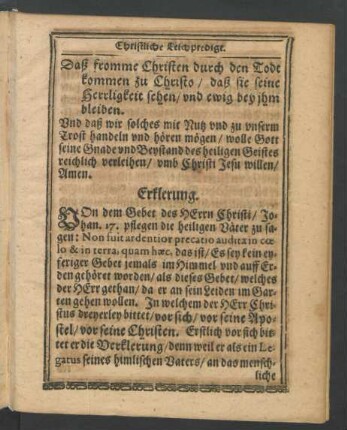 Christliche Leichpredigt.
Daß fromme Christen durch den Todt
kommen zu Christo / daß sie seine
Herrligkeit sehen / vnd ewig bey jhm
bleiben.
Vnd daß wir solches mit Nutz vnd zu vnserm
Trost handeln vnd hören mögen / wolle Gott
seine Gnade vnd Beystand des heiligen Geistes
reichlich verleihen / vmb Christi Jesu willen /
Amen.
Erklerung.
VOn dem Gebet des HErrn Christi / Jo-
han. 17. pflegen die heiligen Väter zu sa-
gen: Non fuit ardentior precatio audita in cœ-
lo & in terra, quam hæc. das ist / Es sey kein ey-
feriger Gebet jemals im Himmel vnd auff Er-
den gehöret worden / als dieses Gebet / welches
der HErr gethan / da er an sein Leiden im Gar-
ten gehen wollen. In welchem der HErr Chri-
stus dreyerley bittet / vor sich / vor seine Apo-
stel / vor seine Christen. Erstlich vor sich bit-
tet er die Verklerung / denn weil er als ein Le-
gatus seines himlischen Vaters / an das mensch-
liche